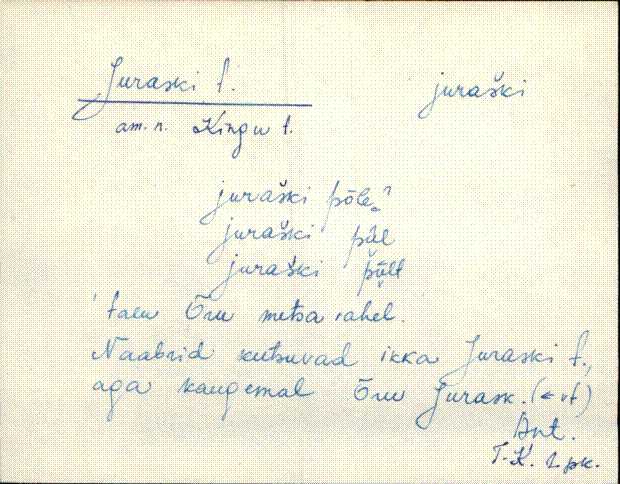 Juraski t.
juraški
am. n. Kingu t.
juraški põle"
juraški pǟl
juraški pǟlt
'talu Õru metsa vahel.
Naabrid kutsuvad ikka Juraski t.,
aga kaugemal Õru Jurask. (← vt)
Ant.
T.K. 2 pk.